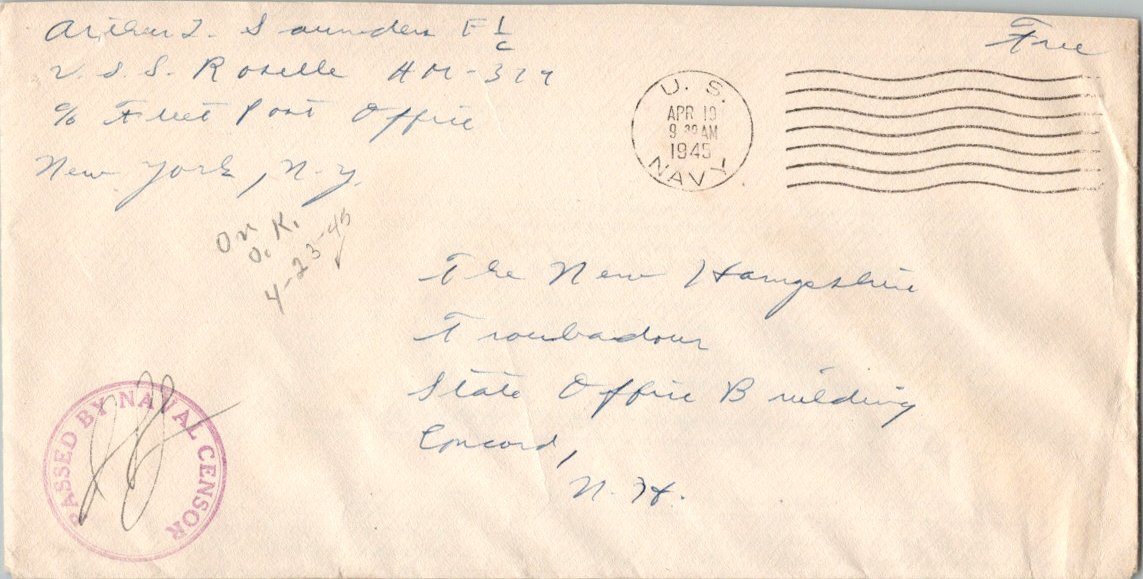 Arthur L. Saunders F 1/c
U.S.S. Roselle AM-379
c/o Fleet Post Office
New York, N.Y.
Free
U. S.
APR 19
9 30 AM
1945
NAVY
On
O.K.
4-23-45
The New Hampshire
Troubadour
State Office Building
Concord,
N. H.
PASSED BY NAVAL CENSOR